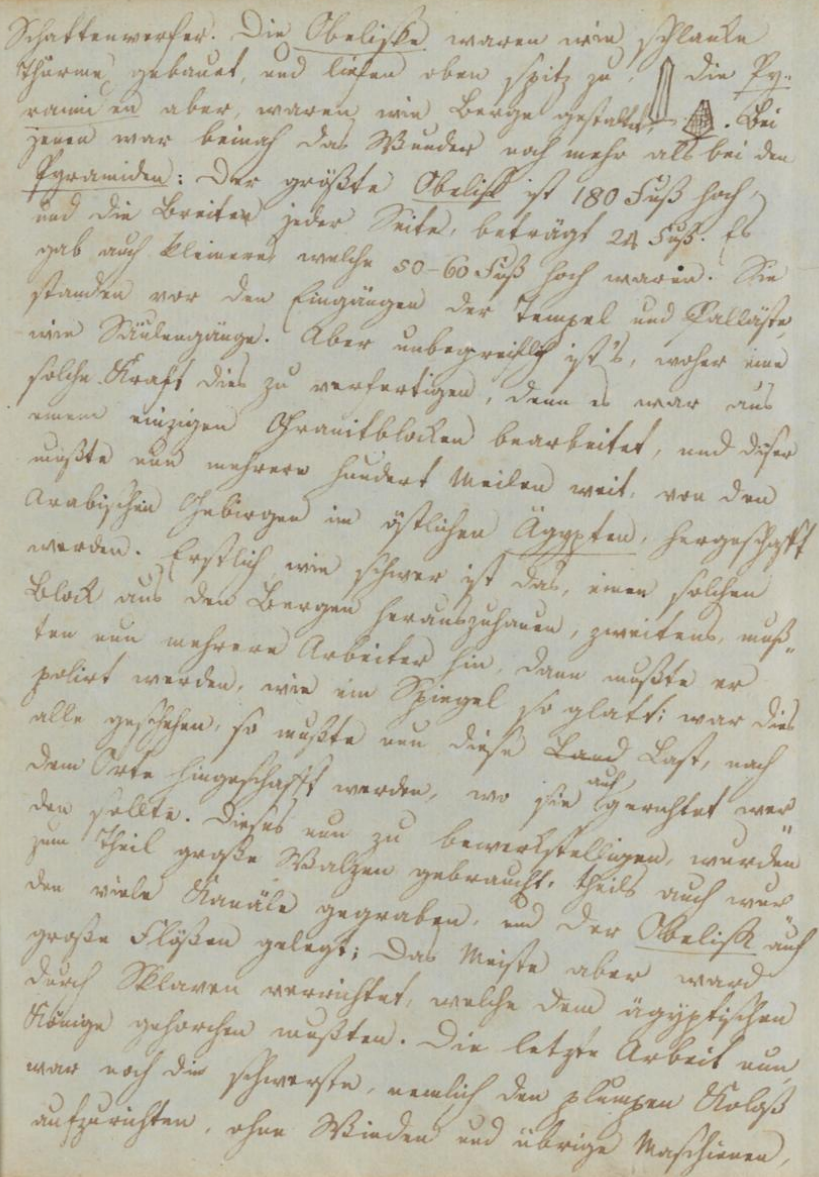 Schattenwerfer. Die Obeliske waren wie schlanke
Thürme gebauet, und liefen oben spitz zu, die Py-
ramiden aber, waren wie Berge gestaltet. Bei
jenen war beinah das Wunder noch mehr als bei den
Pyramiden: Der größte Obelisk ist 180 Fuß hoch,
und die Breite jeder Seite, beträgt 24 Fuß. Es
gab auch kleinere welche 50-60 Fuß hoch waren. Sie
standen vor den Eingängen der Tempel und Palläste,
wie Säulengänge. Aber unbegreiflich ist's, woher eine
solche Kraft dies zu verfertigen, denn es war aus
einem einzigen Granitblocken bearbeitet, und dieser
mußte nun mehrere hundert Meilen weit, von den
Arabischen Gebirgen im östlichen Ägypten, hergeschafft
werden. Erstlich wie schwer ist das, einen solchen
Block aus den Bergen herauszuhauen, zweitens, muß-
ten nun mehrere Arbeiter hin, dann mußte er
polirt werden, wie ein Spiegel so glatt; war dies
alle geschehen, so mußte nun diese Land Last, nach
dem Orte hingeschafft werden, wo sie aufgerichtet wer-
den sollte. Dieses nun zu bewerkstelligen, wurden
zum Theil große Walzen gebraucht, theils auch wur-
den viele Kanäle gegraben, und der Obelisk auf
große Flößen gelegt; Das Meiste aber ward
durch Sklaven verrichtet, welche dem ägyptischen
Könige gehorchen mußten. Die letzte Arbeit nun
war noch die schwerste, nemlich den plumpen Koloß
aufzurichten, ohne Winden und übrige Maschienen,